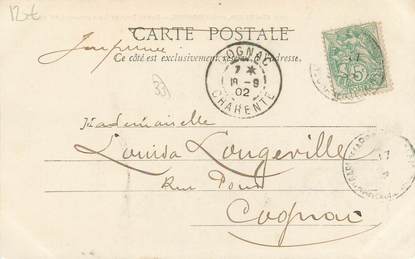 12€
CARTE POSTALE
Imprimé
Ce côté est exclusivement réservé à l'adresse.
COGNAC
7 *
18-9
02
CHARENTE
5
33
Mademoiselle
Louisa Longeville
Rue Pons
Cognac
17